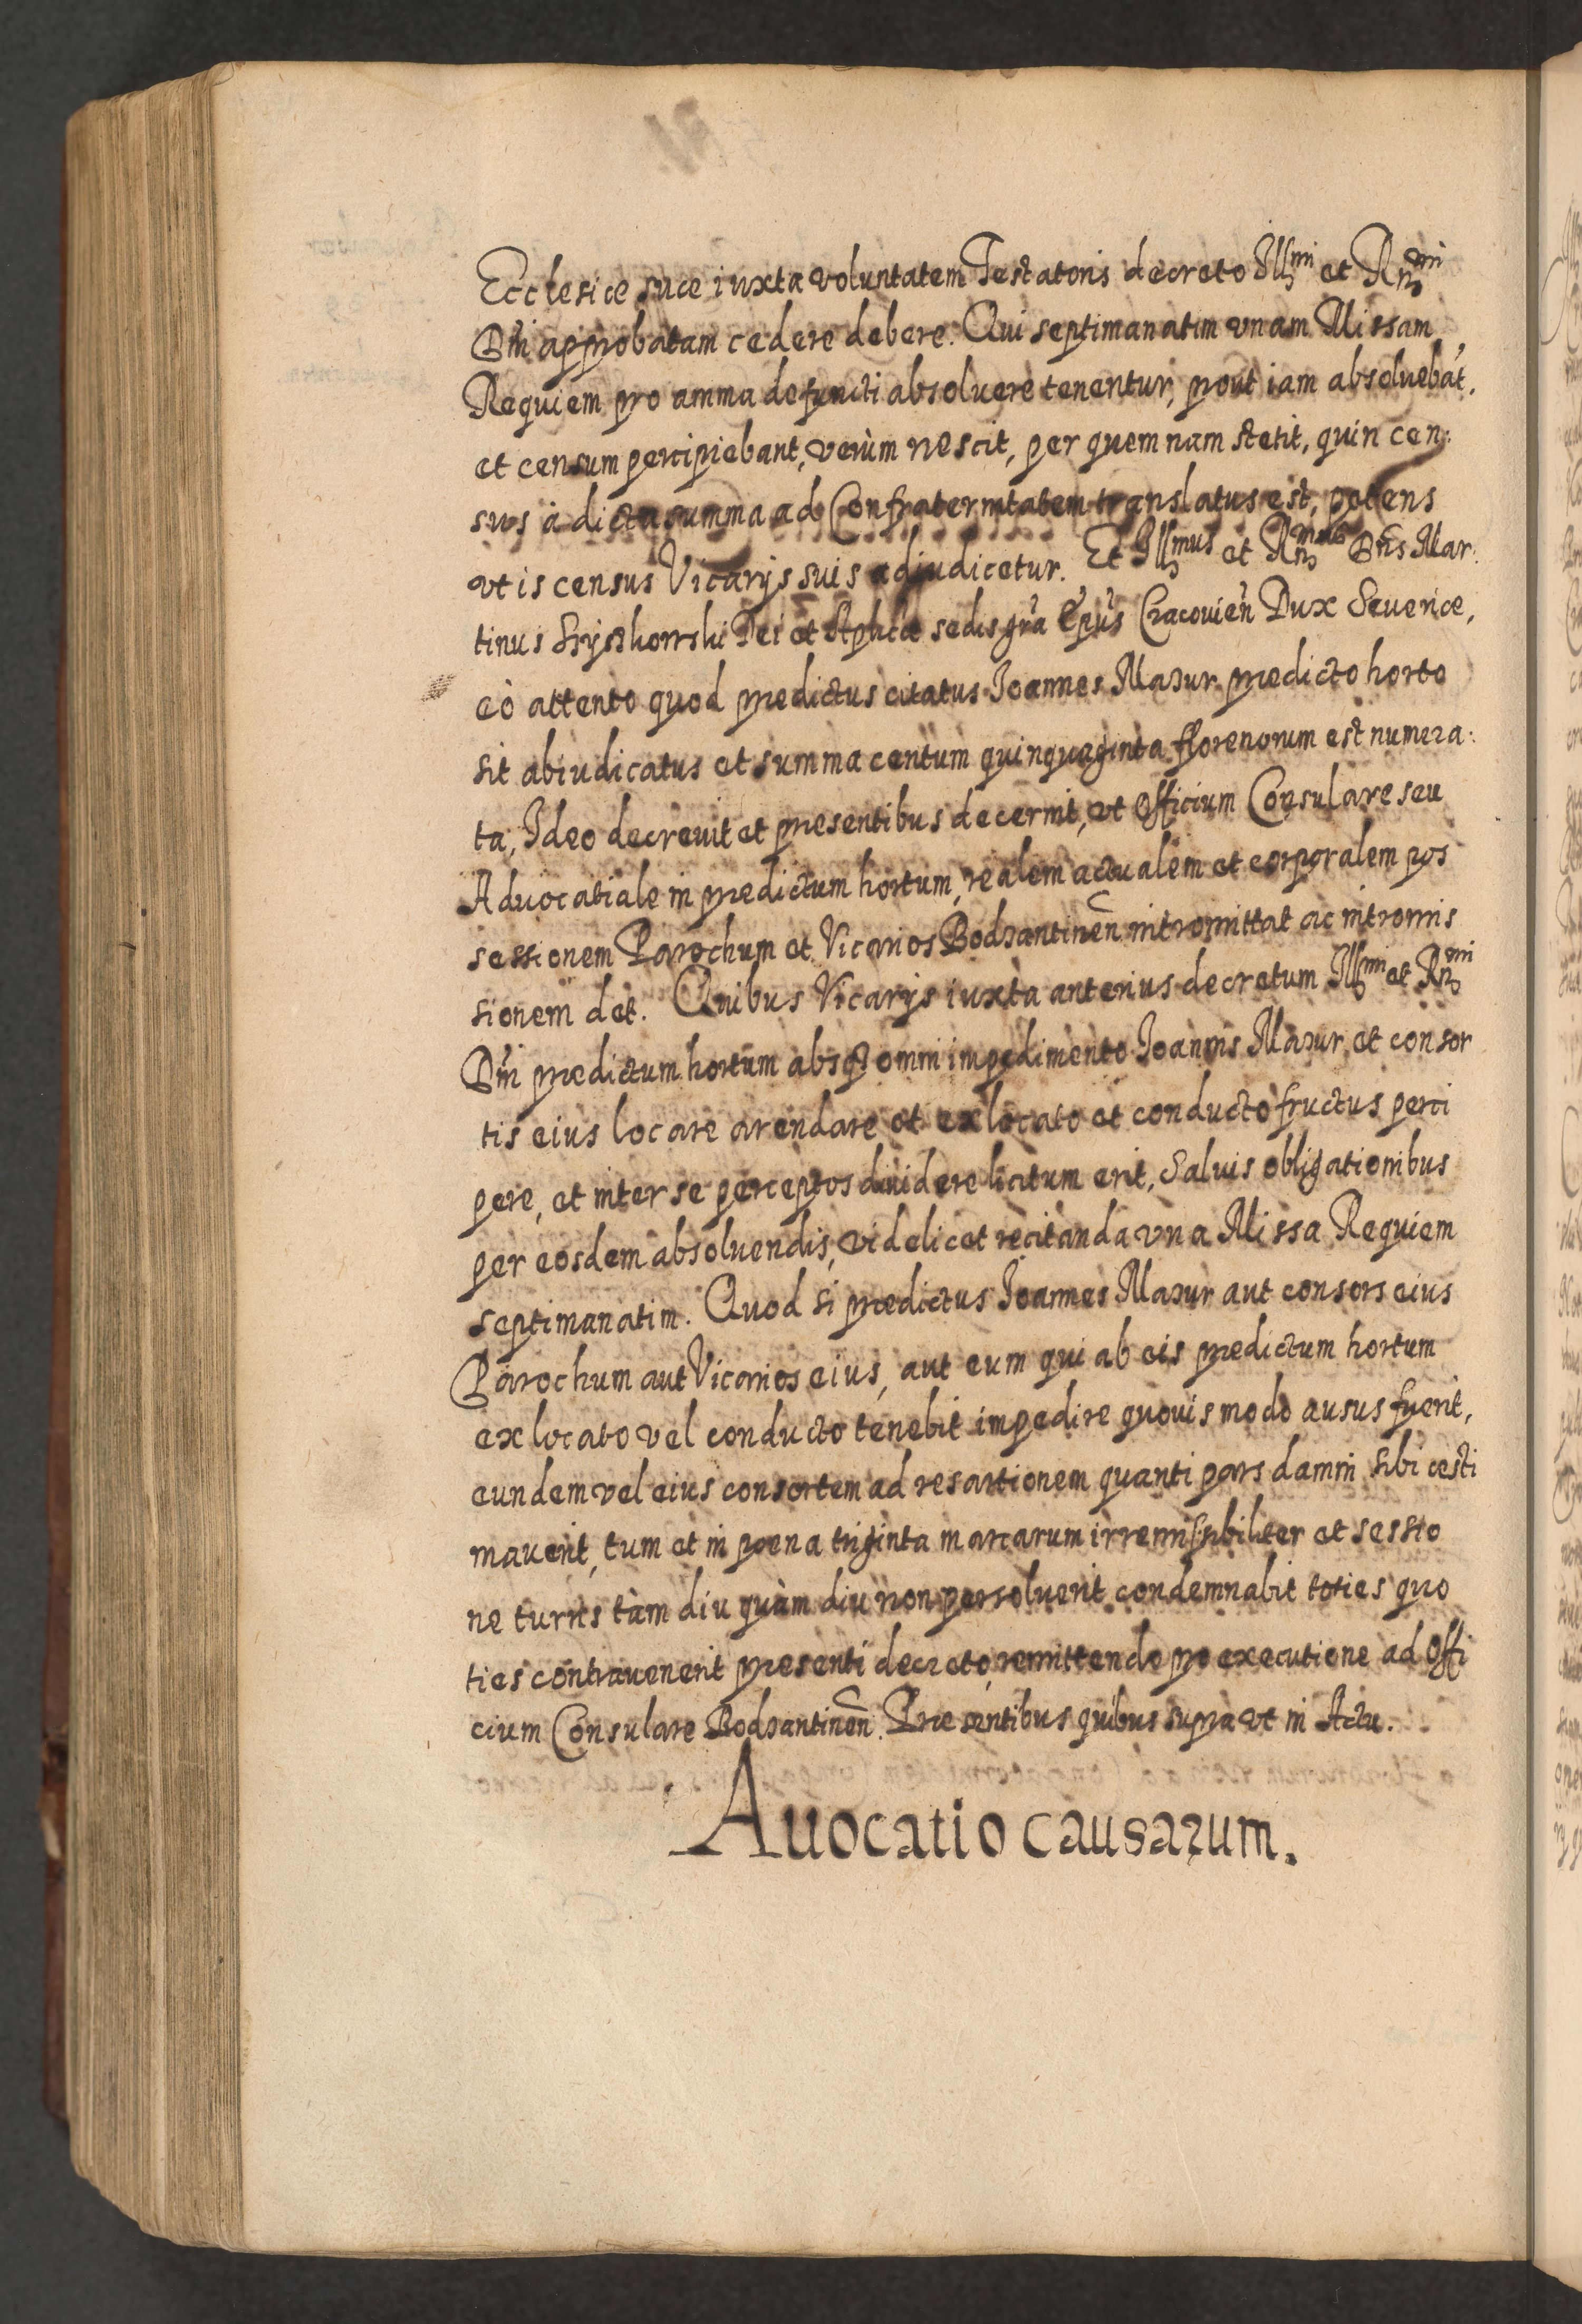 Ecclesiæ suæ iuxta voluntatem Testatoris decreto Illmi et Rndmi
Dni approbatam cedere debere. Qui septimanatim vnam Missam
Requiem pro anima defuncti absoluere tenentur, prout iam absoluebāt,
et censum percipiebant, verùm nescit, per quem nam stetit, quin cen:
sus à dicta summa ad Confraternitatem translatus est, petens
vt is census Vicarijs suis adiudicetur. Et Illmus et Rndmus Dns Mar:
tinus Szyszkowski Dei et Aplicæ sedis gra Epus Cracovien Dux Seueriæ,
eò attento quod prædictus citatus Ioannes Mazur prædicto horto
sit abiudicatus et summa centum quinquaginta florenorum est numera:
ta, Ideo decreuit et præsentibus decernit, vt Officium Consulare seu
Aduocatiale in prædictum hortum, realem actualem et corporalem pos
sessionem Parochum et Vicarios Bodzantinen intromittat ac intromis
sionem det. Quibus Vicarijs iuxta anterius decretum Illmi et Rndmi
Dni prædictum hortum absq3 omni impedimento Ioannis Mazur et consor
tis eius locare arendare et ex locato et conducto fructus perci
pere, et inter se perceptos diuidere licitum erit, Saluis obligationibus
per eosdem absoluendis, videlicet recitanda vna Missa Requiem
septimanatim. Quod si prædictus Ioannes Mazur aut consors eius
Parochum aut Vicarios eius, aut eum qui ab eis prædictum hortum
ex locato vel conducto tenebit impedire quouis modo ausus fuerit,
eundem vel eius consortem ad resartionem quanti pars damni sibi æsti
mauerit, tum et in poena triginta marcarum irremissibiliter et sessio
ne turris tàm diu quàm diu non persoluerit condemnabit toties quo
ties contrauenerit præsenti decreto, remittendo pro executione ad Offi
cium Consulare Bodzantinen. Præsentibus quibus supra vt in Actu.
Auocatio causarum.